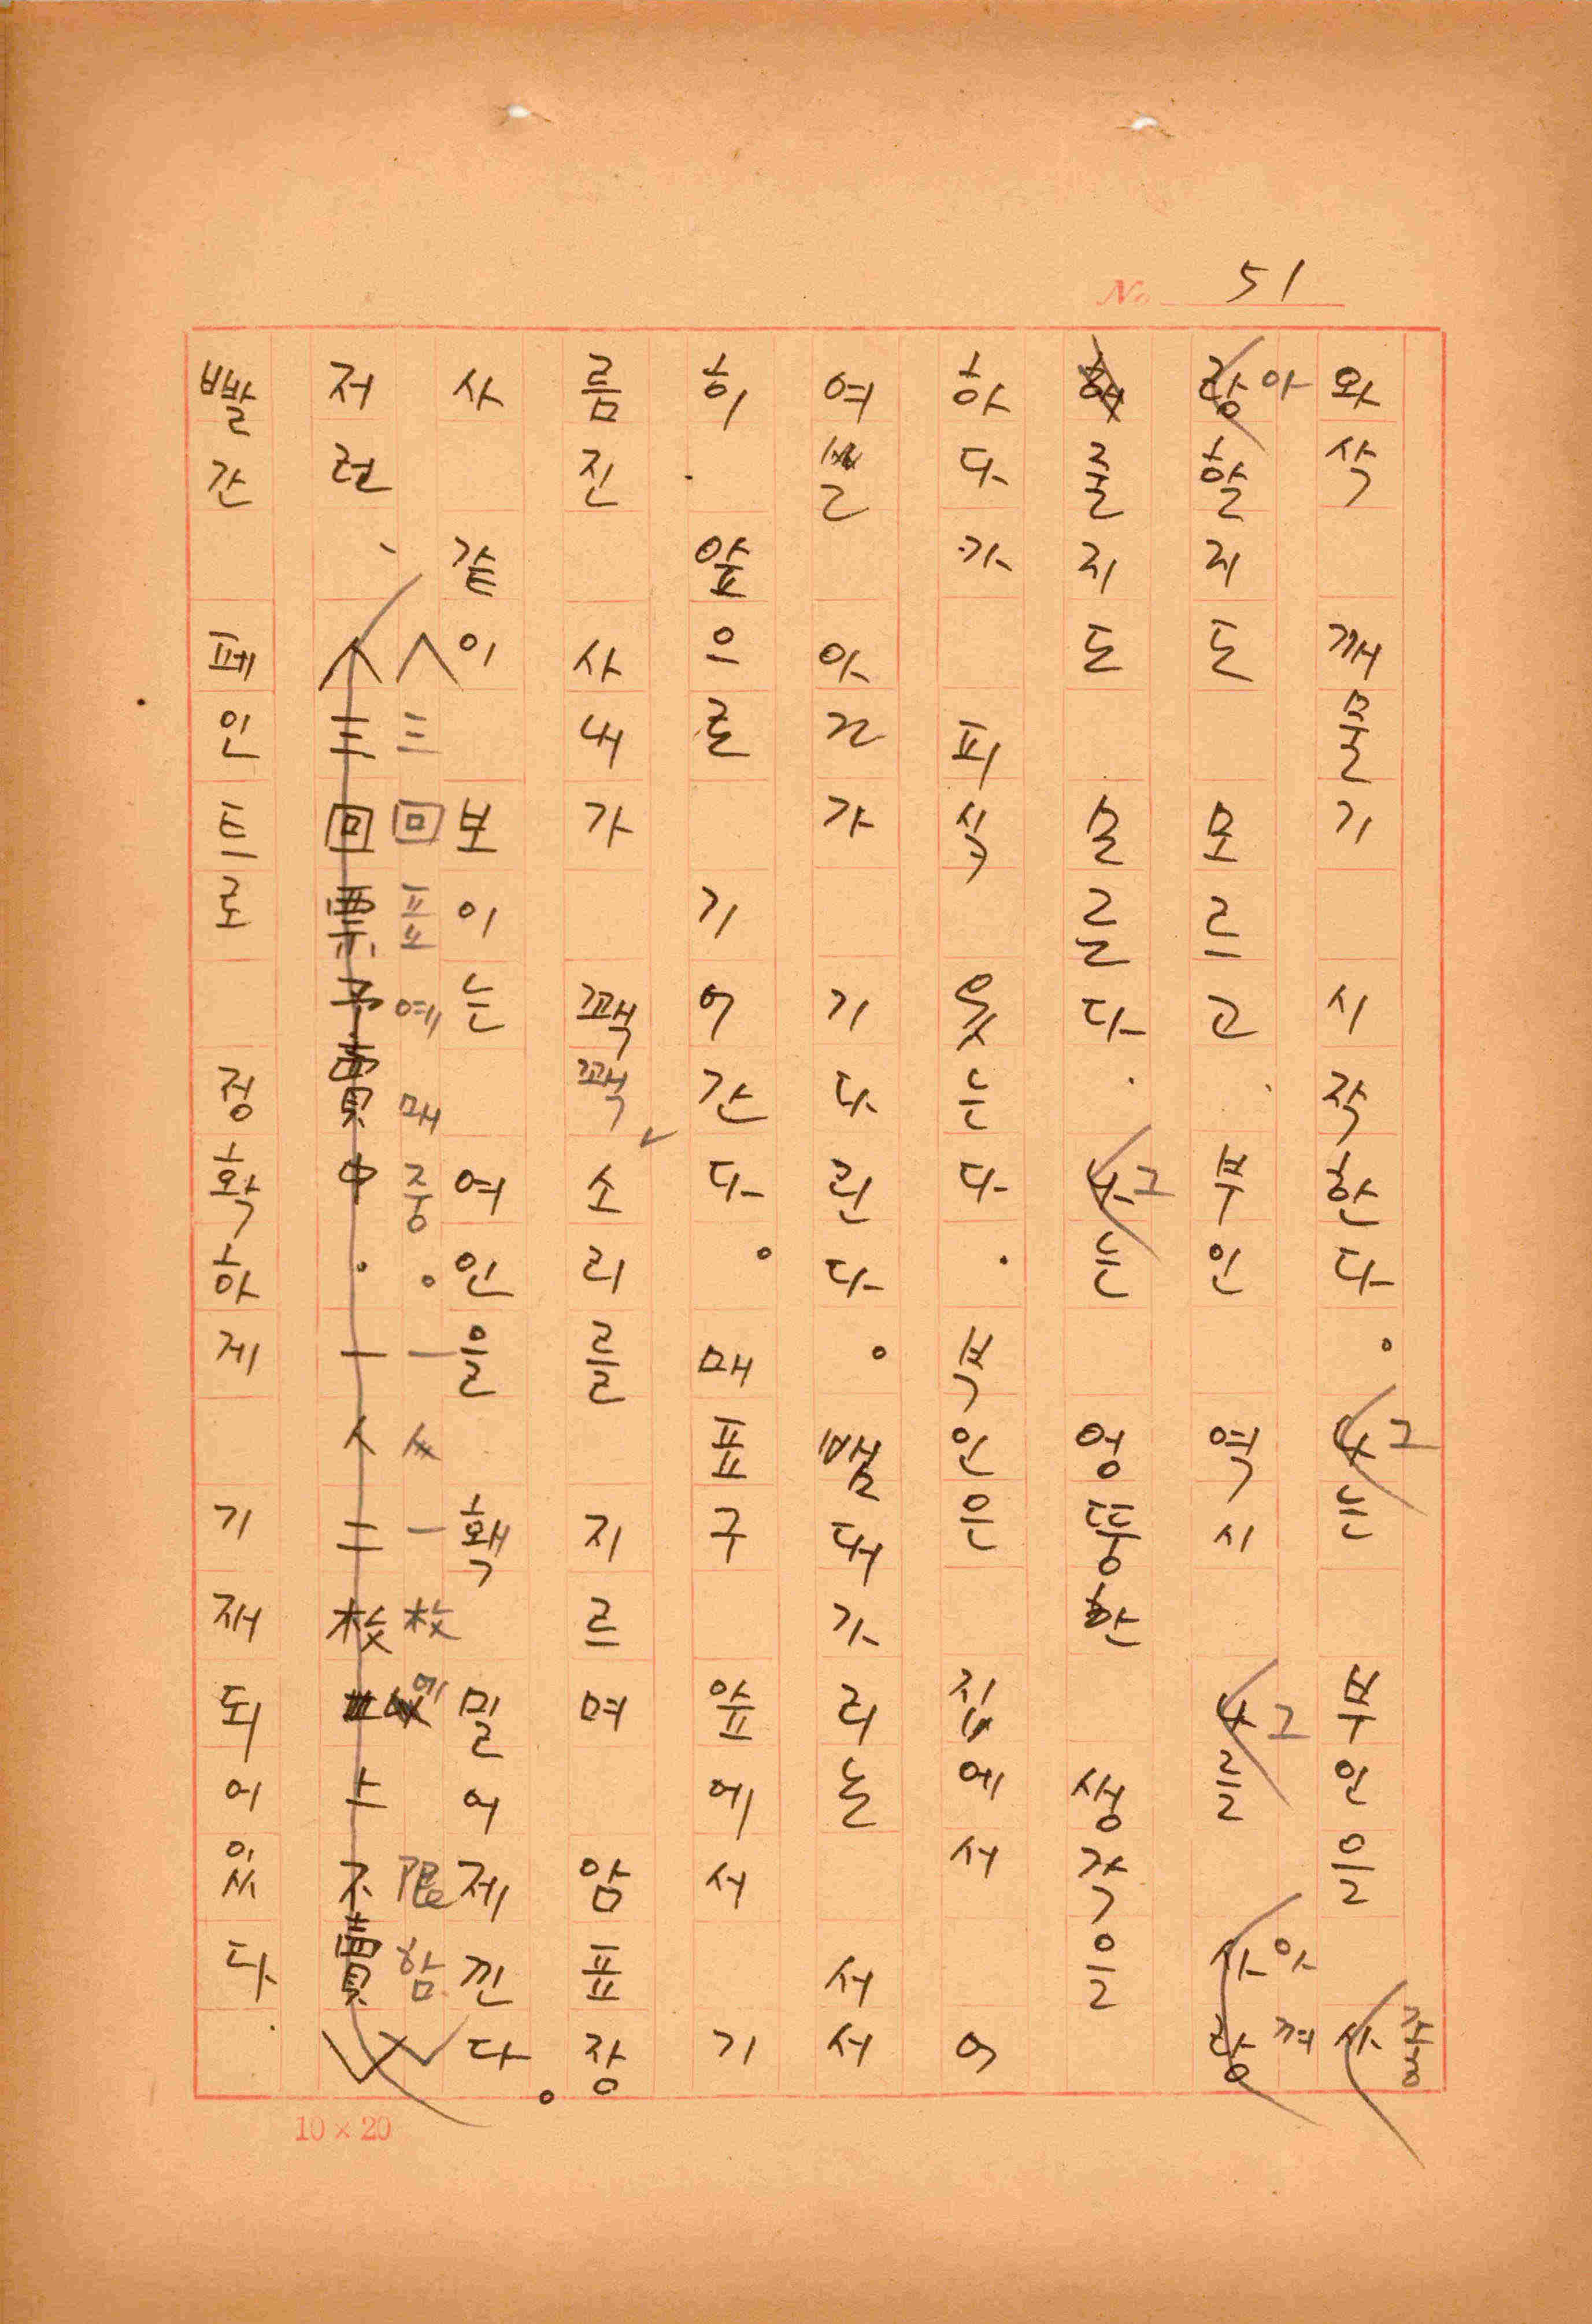 51
와삭 깨물기 시작한다。 나그는 부인을 사좋
랑아할지도 모르고、 부인 역시 나그를 사아랑껴
해줄지도 몰른다. 나그는 엉뚱한 생각을
하다가 피식 웃는다. 부인은 집에서 어
여쁜 아기가 기다린다。 뱀대가리는 서서
히. 앞으로 기어간다。 매표구 앞에서 기
름진 사내가 꽥꽥 소리를 지르며 암표장
사 같이 보이는 여인을 홱 밀어제낀다。
<三回표예매중。一人一枚에限함>
저런、<三回票予賣中.一人二枚以上不賣>
빨간 페인트로 정확하게 기재되어있다.
No.
10×20